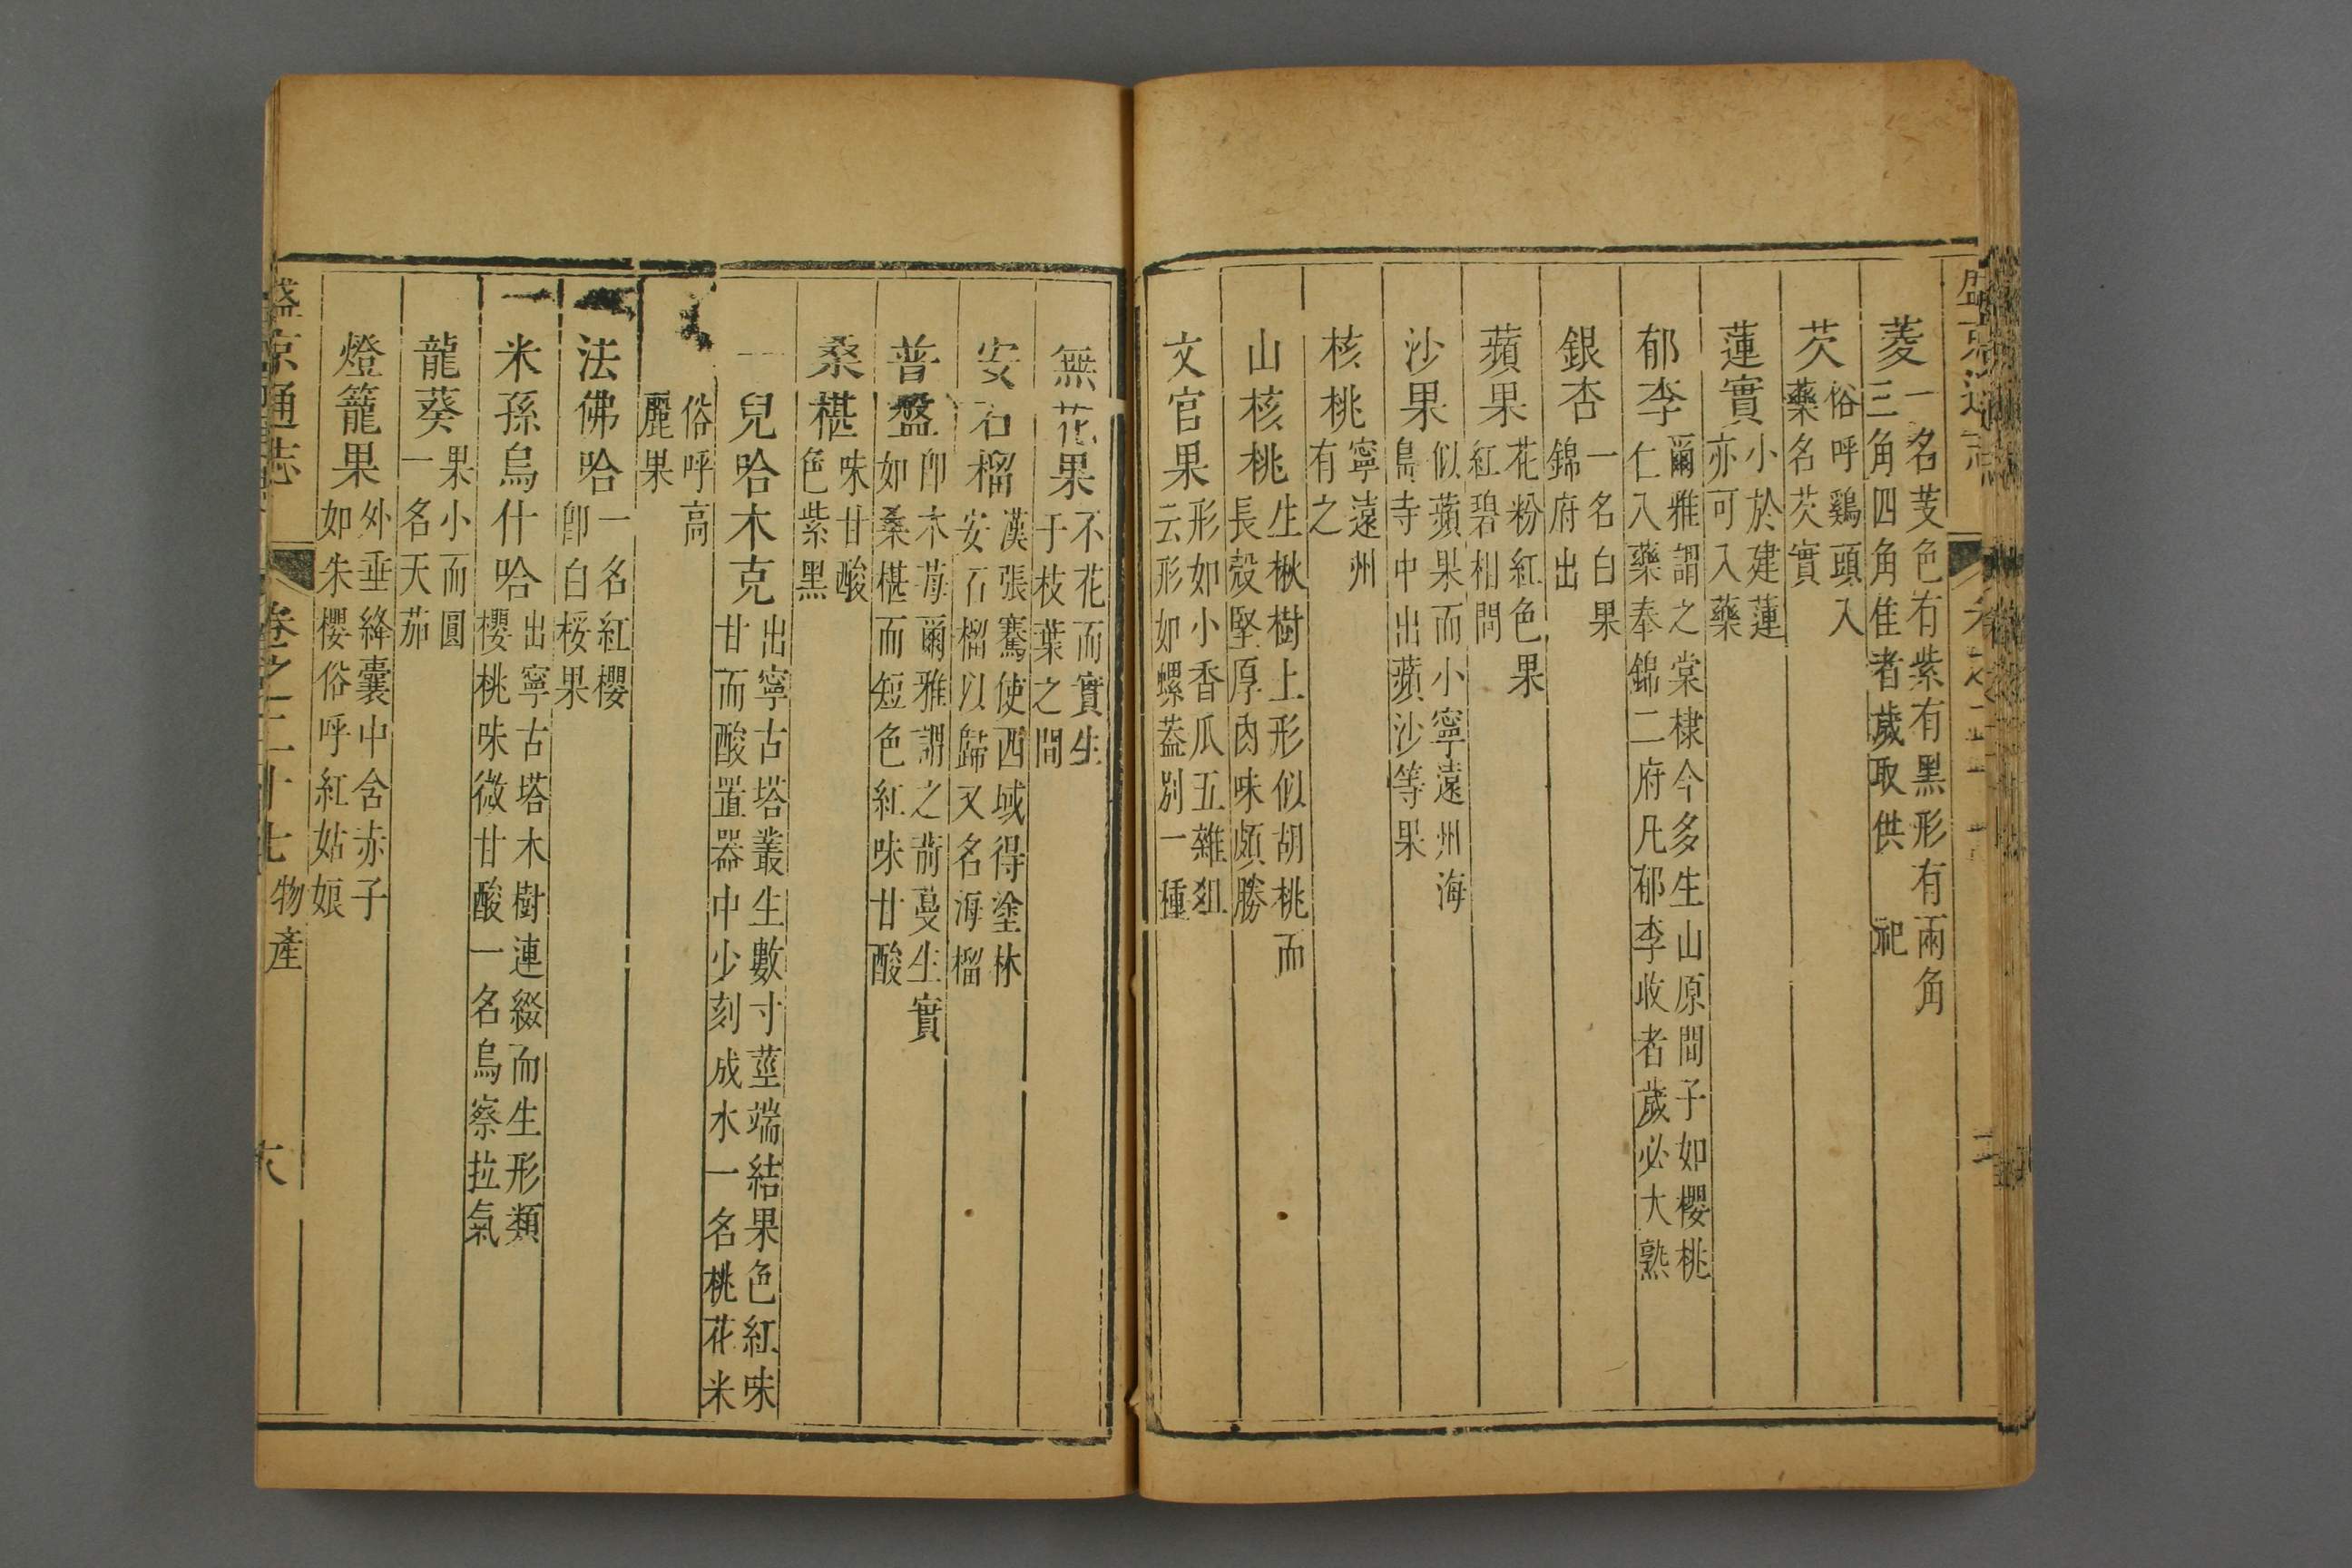 菱一名芰色有紫有黑形有兩角
三角四角隹者歲取供　祀
芡俗呼鷄頭入
藥名芡實
蓮實小於建蓮
亦可入藥
郁李爾雅謂之棠棣今多生山原間子如櫻桃
仁入藥奉錦二府凡郁李收者歲必大熟
銀杏一名白果
錦府出
蘋果花粉紅色果
紅碧相間
沙果似蘋果而小寧遠州海
島寺中出蘋沙等果
核桃寧遠州
有之
山核桃生楸樹上形似胡桃而
長殼堅厚肉味頗勝
文官果形如小香瓜五雜俎
云形如螺蓋別一種
無花果不花而實生
于枝葉之間
安石榴漢張騫使西域得塗林
安石榴以歸又名海榴
普盤卽木莓爾雅謂之葥蔓生實
如桑椹而短色紅味甘酸
桑椹味甘酸
色紫黑
一兒哈木克出寧古塔叢生數寸莖端結果色紅味
甘而酸置器中少刻成水一名桃花米
俗呼高
麗果
法佛哈一名紅櫻
卽白桵果
米孫烏什哈出寧古塔木樹連綴而生形類
櫻桃味微甘酸一名烏察拉氣
龍葵果小而圓
一名天茄
燈籠果外垂絳囊中含赤子
如朱櫻俗呼紅姑娘
盛京通志　卷之二十七　物產